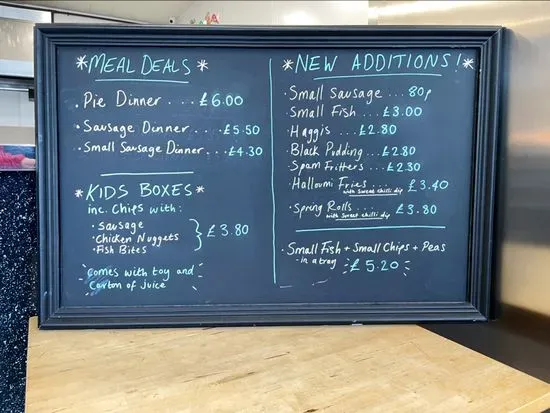 *MEAL DEALS*
• Pie Dinner ... £6.00
• Sausage Dinner ... £5.50
• Small Sausage Dinner .. £4.30
*KIDS BOXES*
inc. Chips with:
• Sausage
• Chicken Nuggets
• Fish Bites
£3.80
Comes with toy and
Carton of juice
*NEW ADDITIONS!*
• Small Sausage ... 80p
• Small Fish ... £3.00
• Haggis ... £2.80
• Black Pudding .... £2.80
• Spam Fritters ... £2.30
• Halloumi Fries ... £3.40
with sweet chilli dip
• Spring Rolls .... £3.80
with sweet chilli dip
• Small Fish + Small Chips + Peas
- in a tray £5.20